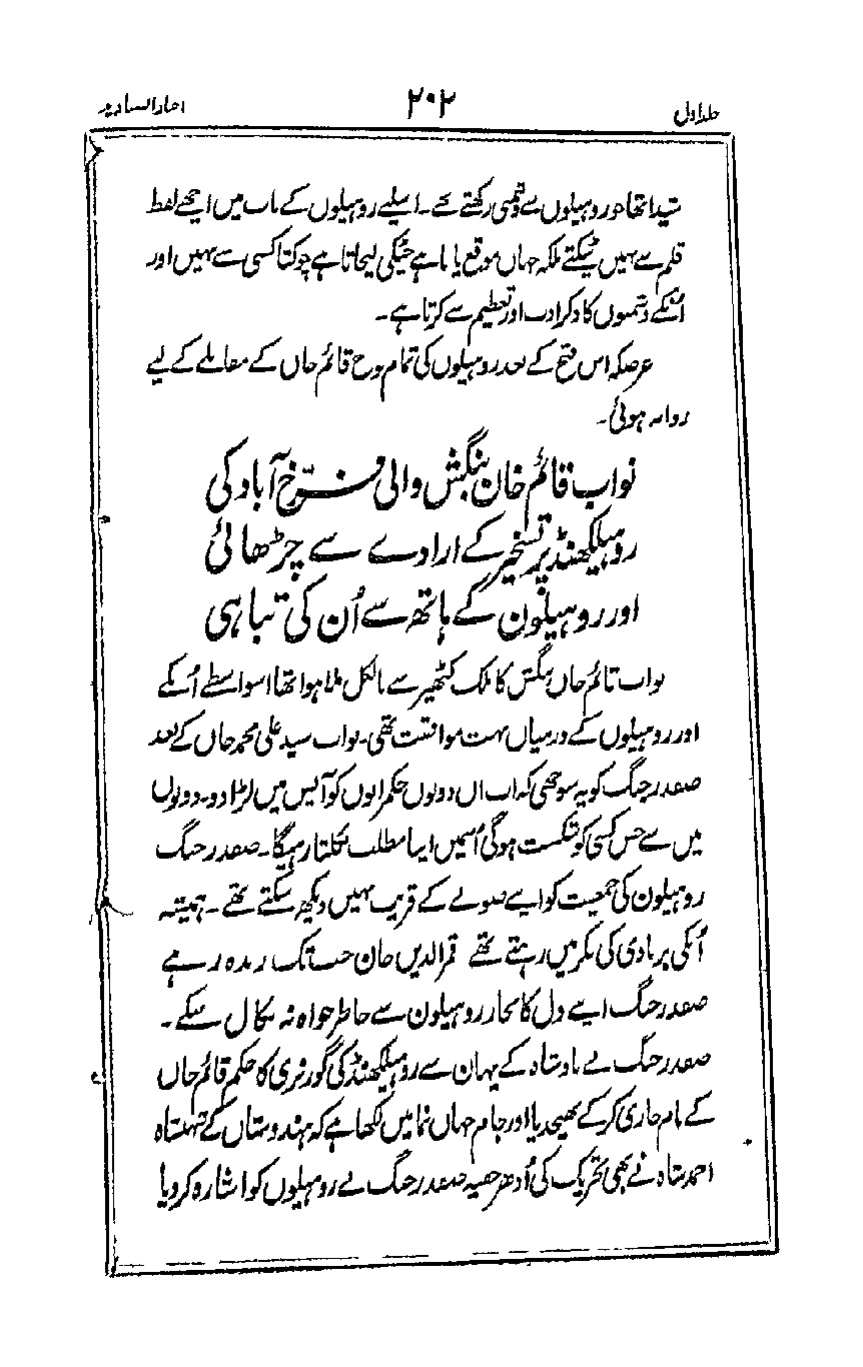 جلد اول
۲۰۲
اخبار الصنادید
شیدا تھا جو روہیلوں سے دشمنی رکھتے تھے۔ اسلیے روہیلوں کے باب میں اچھے لفظ
قلم سے نہیں ٹپکتے بلکہ جہاں موقع پاتا ہے چٹکی لیجاتا ہے چوکتا کسی سے نہیں اور
اُنکے دشمنوں کا ذکر ادب اور تعظیم سے کرتا ہے۔
غرضکہ اس فتح کے بعد روہیلوں کی تمام فوج قائم خاں کے مقابلے کے لیے
روانہ ہوئی۔
نواب قائم خان بنگش والی فرّخ آباد کی
روہیلکھنڈ پر تسخیر کے ارادے سے چڑھائی
اور روہیلون کے ہاتھ سے اُن کی تباہی
نواب قائم خاں بنگش کا ملک کٹھیر سے بالکل ملا ہوا تھا اسواسطے اُنکے
اور روہیلوں کے درمیاں بہت موافقت تھی۔ نواب سید علی محمد خاں کے بعد
صفدر جنگ کو یہ سوجھی کہ اب اں دونوں حکمرانوں کو آپس میں لڑا دو۔ دونوں
میں سے جس کسی کو شکست ہوگی اُسمیں اپنا مطلب نکلتا رہیگا۔ صفدر جنگ
روہیلون کی جمعیت کو اپنے صوبے کے قریب نہیں دیکھ سکتے تھے۔ ہمیشہ
اُنکی بربادی کی فکر میں رہتے تھے قمرالدیں خان جب تک زندہ رہے
صفدر جنگ اپنے دل کا بخار روہیلون سے خاطر خواہ نہ نکال سکے۔
صفدر جنگ نے بادشاہ کے یہان سے روہیلکھنڈ کی گورنری کا حکم قائم خاں
کے نام جاری کر کے بھیجدیا اور جام جہاں نما میں لکھا ہے کہ ہندوستاں کے شہنشاہ
احمد شاہ نے بھی تحریک کی اُدھر خفیہ صفدر جنگ نے روہیلوں کو اشارہ کر دیا